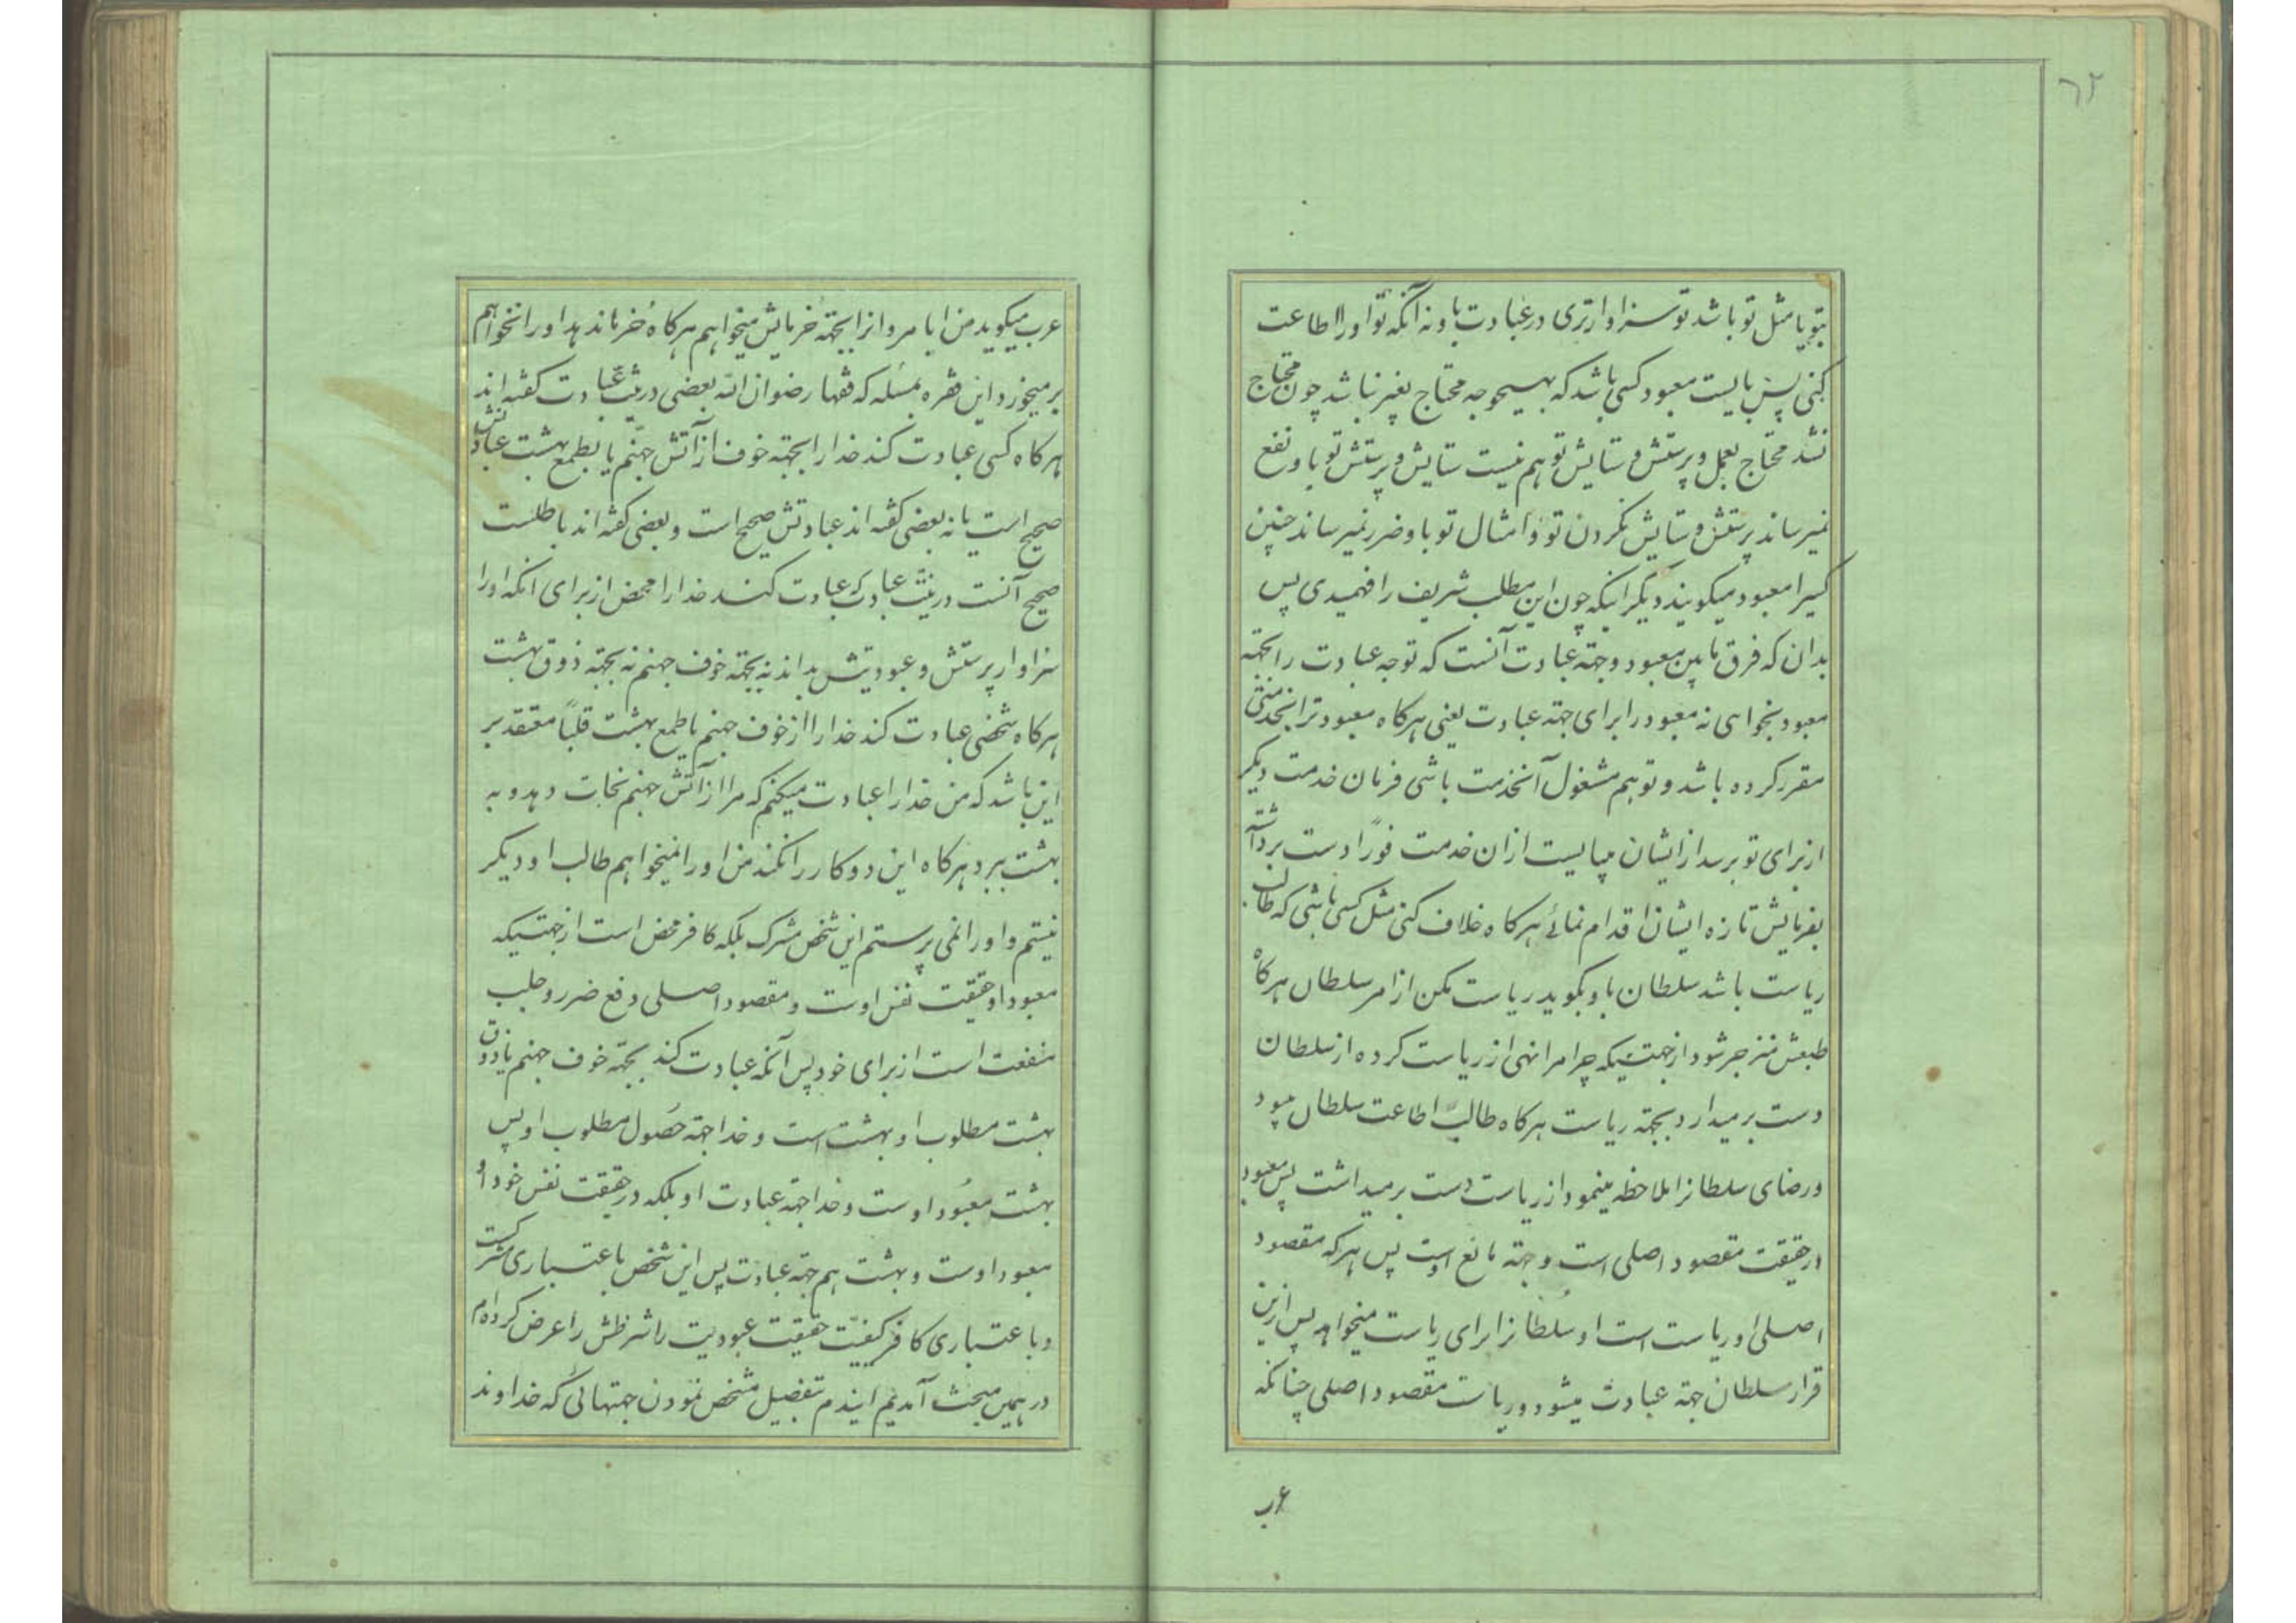 ٦٢
بتو یا مثل تو باشد تو سزاوارتری در عبادت باو نه آنکه تو او را اطاعت
کنی پس بایست معبود کسی باشد که بهیچوجه محتاج بغیر نباشد چون محتاج
نشد محتاج بعمل و پرستش و ستایش تو هم نیست ستایش و پرستش تو باو نفع
نمیرساند پرستش و ستایش نکردن تو و امثال تو باو ضرر نمیرساند چنین
کسیرا معبود میکویند دیکر اینکه چون این مطلب شریف را فهمیدی پس
بدان که فرق مابین معبود و جهة عبادت آنست که تو جه عبادت را بجهة
معبود بخواهی نه معبود را برای جهة عبادت یعنی هرکاه معبود ترا بخدمتی
مقرر کرده باشد و تو هم مشغول آنخدمت باشی فرمان خدمت دیکر
از برای تو برسد از ایشان میبایست ازان خدمت فوراً دست برداشته
بفرمایش تازه ایشان اقدام نمائے هرکاه خلاف کنی مثل کسی باشی که طالب
ریاست باشد سلطان باو بکوید ریاست مکن از امر سلطان هرکاه
طبعش منزجر شود از جهتیکه چرا مرا نهی از ریاست کرده از سلطان
دست برمیدارد بجهة ریاست هرکاه طالب اطاعت سلطان میبود
و رضای سلطانرا ملاحظه مینمود از ریاست دست برمیداشت پس معبود
در حقیقت مقصود اصلی است و جهة مانع اوست پس هرکه مقصود
اصلی او ریاست است او سُلطانرا برای ریاست میخواهد پس ازین
قرار سلطان جهة عبادت میشود و ریاست مقصود اصلی چنانکه
عرب
عرب میکوید من ایا مروانرا بجهة خُرمایش میخواهم هرکاه خُرما ندهد او را نخواهم
برمیخورد این فقره بمسئله که فقها رضوان الله بعضی در نیّت عبادت کفته اند
هرکاه کسی عبادت کند خدارا بجهة خوف از آتش جهنّم یا بطمع بهشت عبادتش
صحیح است یا نه بعضی کفته اند عبادتش صحیح است و بعضی کفته اند باطلست
صحیح آنست در نیّت عبادت عبادت کند خدارا محض از برای انکه اورا
سزاوار پرستش و عبودیتش بداند نه بجهة خوف جهنم نه بجهة ذوق بهشت
هرکاه شخصی عبادت کند خدارا از خوف جهنم یا طمع بهشت قلباً معتقد بر
این باشد که من خدارا عبادت میکنم که مرا از آتش جهنم نجات دهد و به
بهشت ببرد هرکاه این دو کار را نکند من او را نمیخواهم طالب او دیکر
نیستم و او را نمی پرستم این شخص مشرک بلکه کافر محض است از جهتیکه
معبود او حقیقت نفس اوست و مقصود اصلی دفع ضرر و جلب
منفعت است از برای خود پس آنکه عبادت کند بجهّة خوف جهنم یا ذوق
بهشت مطلوب او بهشت است و خدا جهة حُصول مطلوب او پس
بهشت معبُود اوست و خدا جهة عبادت او بلکه در حقیقت نفس خود او
معبود اوست و بهشت هم جهة عبادت پس این شخص باعتباری مشرکست
و باعتباری کافر کیفیّت حقیقت عبودیت را شرایطش را عرض کرده ام
در همین مبحث آمدیم ایندم تفضیل مشخص نمودن جهتهائی که خداوند